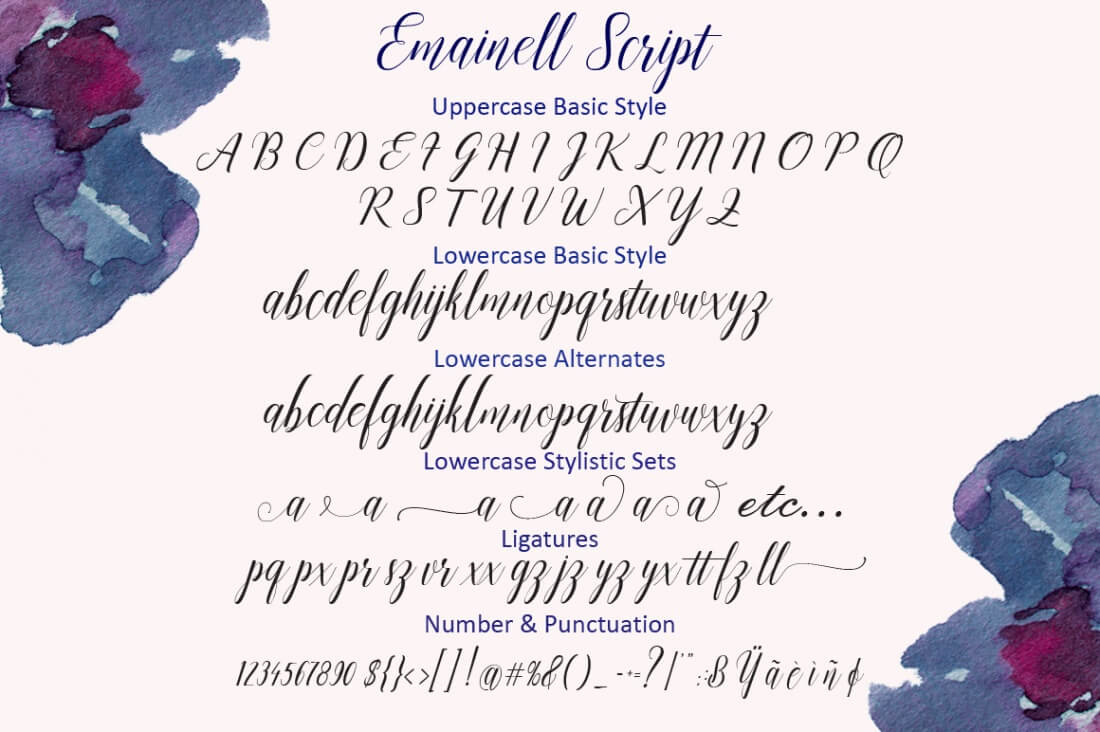 Emainell Script
Uppercase Basic Style
A B C D E F G H I J K L M N O P Q
R S T U V W X Y Z
Lowercase Basic Style
abcdefghijklmnopqrstuvwxyz
Lowercase Alternates
abcdefghijklmnopqrstuvwxyz
Lowercase Stylistic Sets
a a a a a a a etc...
Ligatures
pq px pr sz vr xx gz jz yz yx tt fz ll
Number & Punctuation
1234567890 ${}<>[]!@#%&()_-+=?|'":;ß Ÿ ã è ì ñ ¢